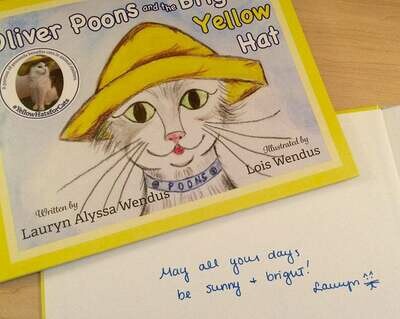 Oliver Poons and the Brig
Yellow
Hat
#YellowHatsforCats
POONS
Written by
Lauryn Alyssa Wendus
Illustrated by
Lois Wendus
May all your days
be sunny + bright!
Lauryn